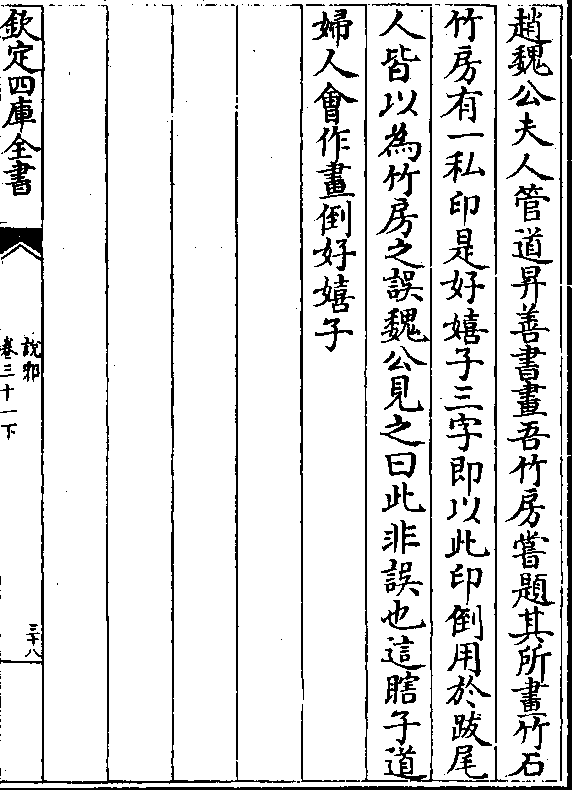 趙魏公夫人管道昇善書畫吾竹房嘗題其所畫竹石
竹房有一私印是好嬉子三字即以此印倒用於跋尾
人皆以為竹房之誤魏公見之曰此非誤也這瞎子道
婦人會作畫倒好嬉子
欽定四庫全書
說郛
卷三十一下
三十八